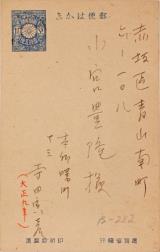 郵便はがき
赤坂區青山南町
六ノ一〇八
小宮豊隆様
本郷曙町
十三
寺田寅彦
(大正九年)
B-222